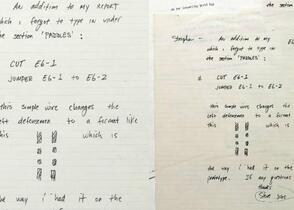 An addition to my REPORT
which i forgot to type in under
the section 'PADDLES' :
CUT E6-1
JUMPER E6-1 to E6-2
this simple wire changes the
to a format like
this which is
the way i had it on the
the section
An addition to my report
which i forgot to type in under
the section 'PADDLES' :
CUT E6-1
JUMPER E6-1 to E6-2
this simple wire changes the
to a format like
this which is
the way i had it on the
prototype. If any questions
thanks